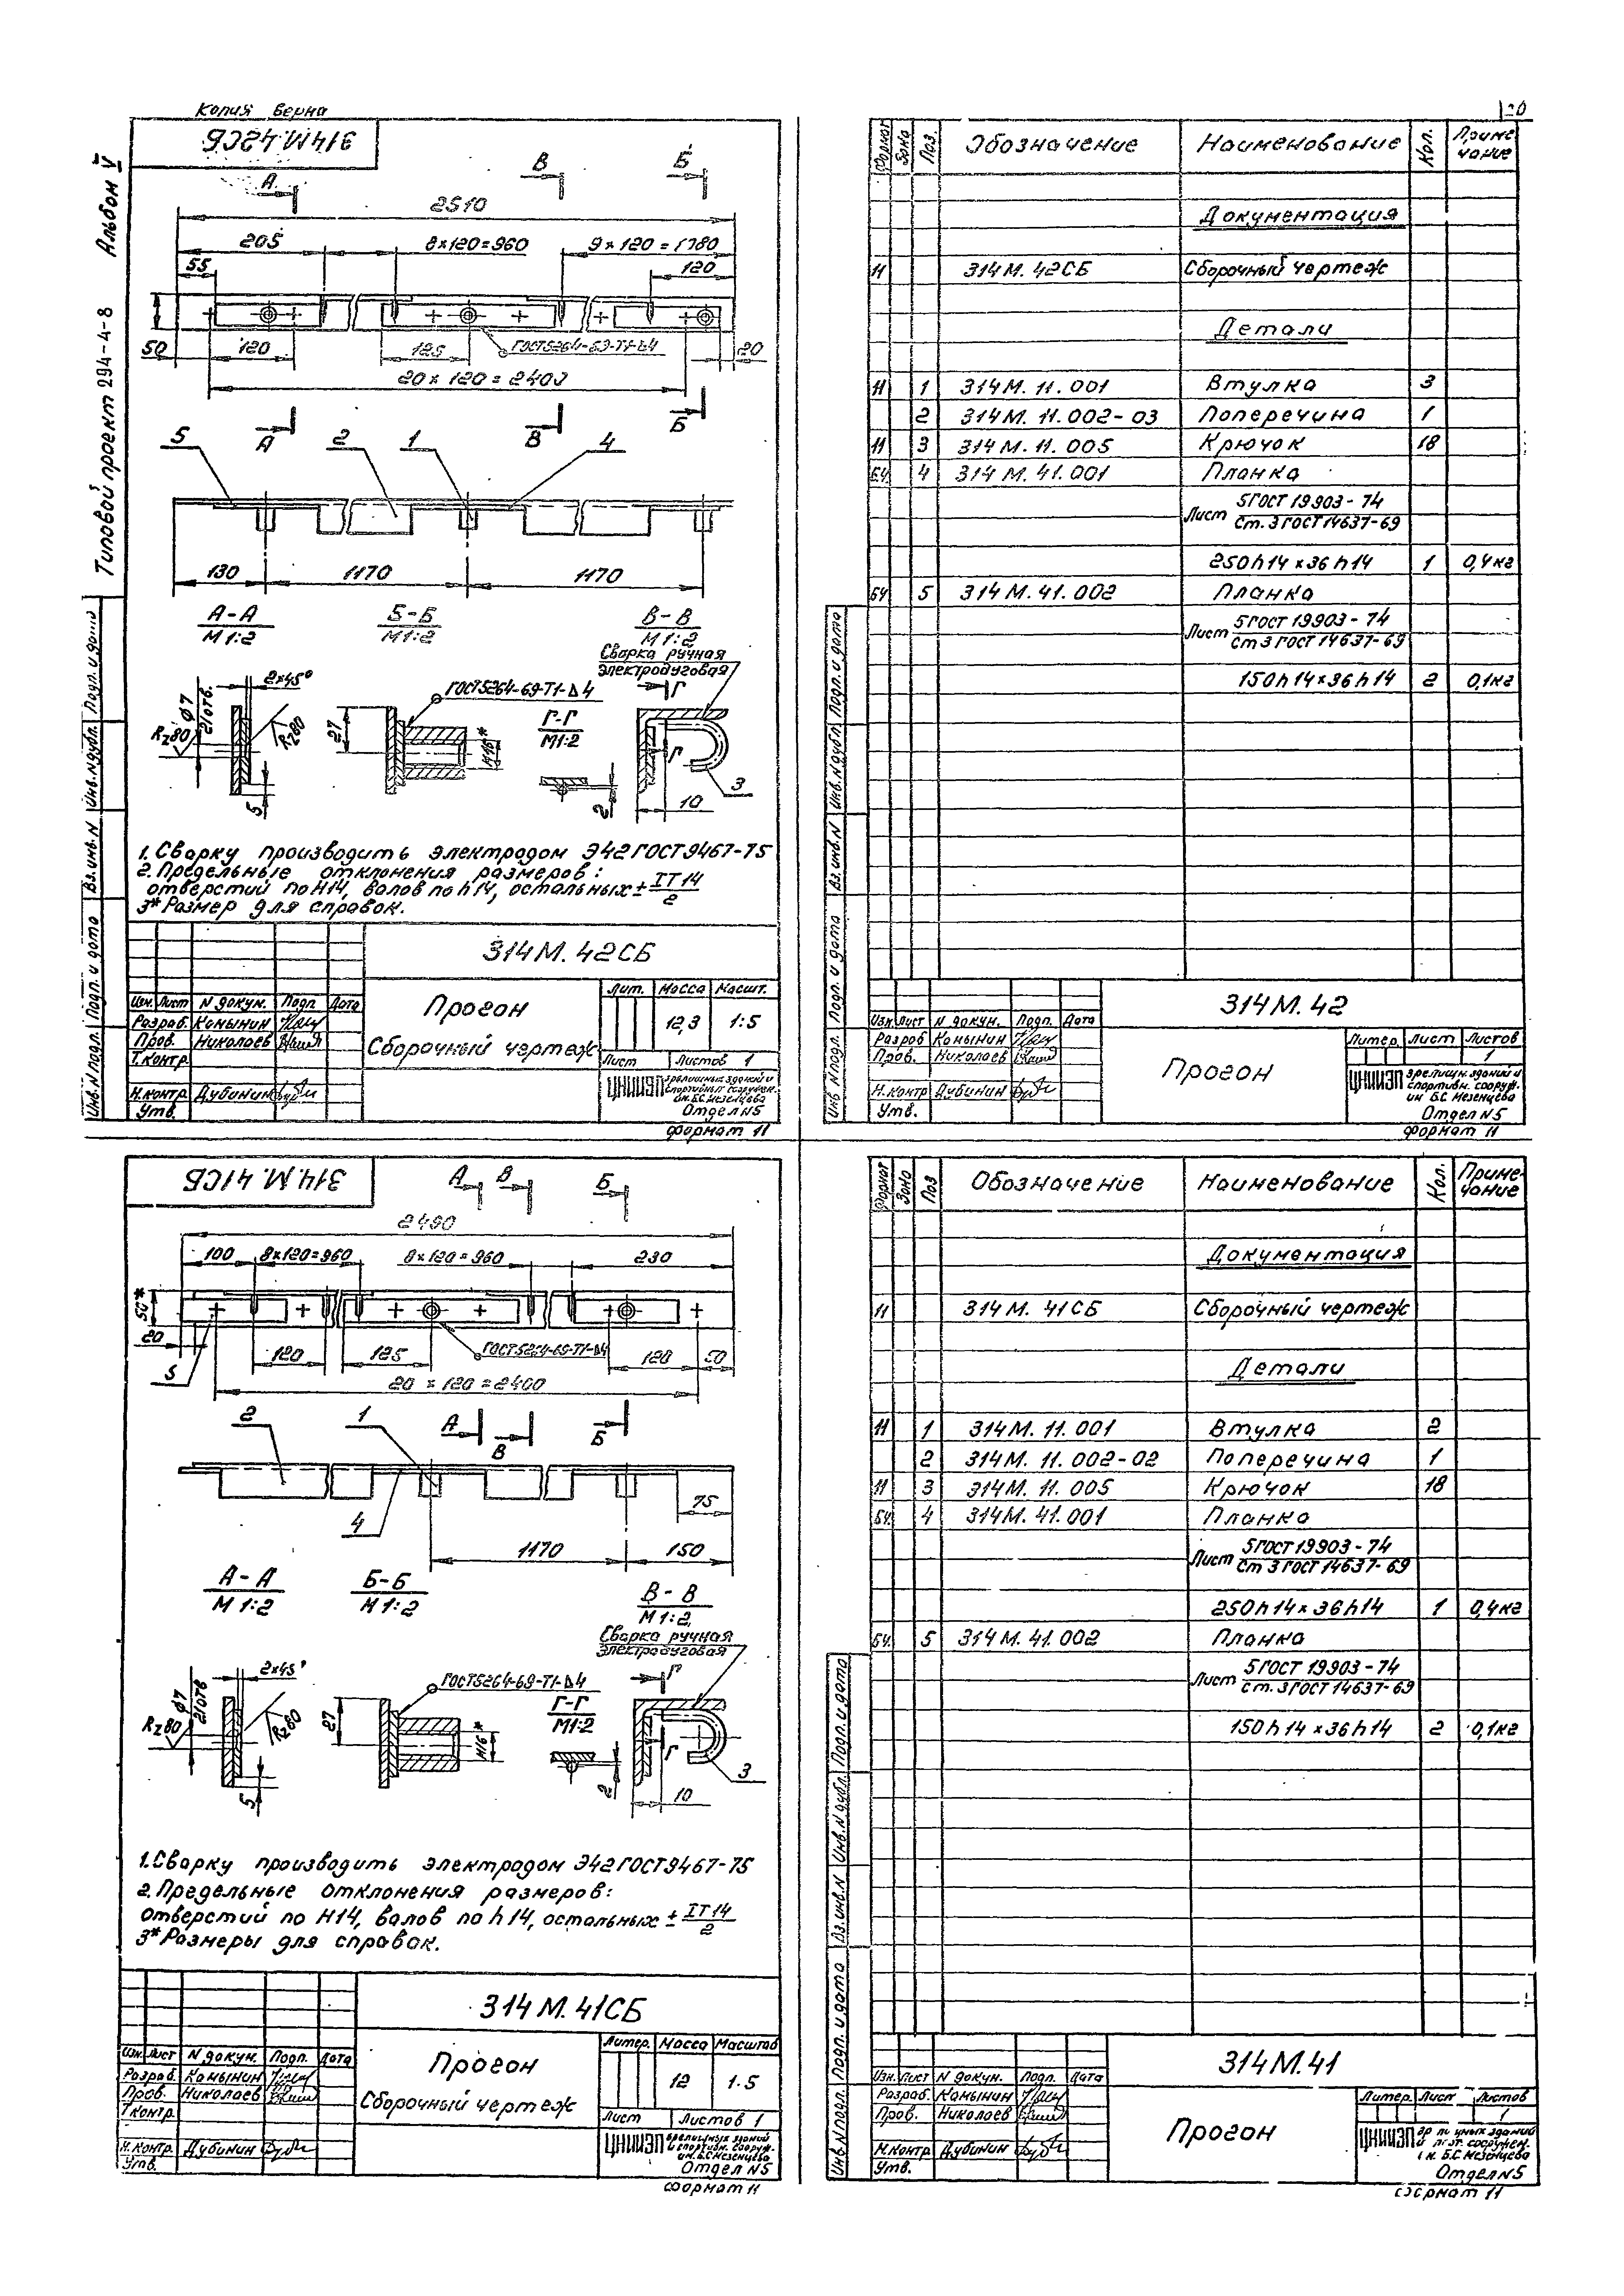 Копия верна
20
314М.42СБ
Альбом V
Типовой проект 294-4-8
А
В
Б
2510
205
8×120=960
9×120=1080
55
120
50
120
125
ГОСТ5264-69-Т1-△4
20
20×120=2400
А
В
Б
5
2
1
4
130
1170
1170
А-А
М1:2
Б-Б
М1:2
В-В
М1:2
Сварка ручная
электродуговая
2×45°
ф7
21отв.
Rz80
Rz80
5
ГОСТ5264-69-Т1-△4
27
М16*
Г-Г
М1:2
2
Г
Г
3
10
1. Сварку производить электродом Э42 ГОСТ9467-75
2. Предельные отклонения размеров:
отверстий по Н14, валов по h14, остальных ± IT14/2
3* Размер для справок.
314М.42СБ
Прогон
Сборочный чертеж
Лит. Масса Масшт.
12,3 1:5
Лист Листов 1
Изм. Лист N докум. Подп. Дата
Разраб. Камынин
Пров. Николаев
Т.контр.
Н.контр. Дубинин
Утв.
ЦНИИЭП зрелищных зданий и
спортивных сооружен.
им. Б.С. Мезенцева
Отдел N5
Формат 11
Инв. N подл. Подп. и дата Вз. инв. N Инв. N дубл. Подп. и дата
Формат Зона Поз. Обозначение Наименование Кол. Приме-
чание
Документация
11 314М.42СБ Сборочный чертеж
Детали
11 1 314М.11.001 Втулка 3
2 314М.11.002-03 Поперечина 1
11 3 314М.11.005 Крючок 18
БЧ. 4 314М.41.001 Планка
Лист 5ГОСТ 19903-74
Ст.3 ГОСТ 14637-69
250h14×36h14 1 0,4кг
БЧ 5 314М.41.002 Планка
Лист 5ГОСТ 19903-74
Ст3 ГОСТ 14637-69
150h14×36h14 2 0,1кг
314М.42
Прогон
Изм. Лист N докум. Подп. Дата
Разраб Камынин
Пров. Николаев
Н.контр Дубинин
Утв.
Литер. Лист Листов
1
ЦНИИЭП зрелищн. зданий и
спортивн. сооруж.
им Б.С. Мезенцева
Отдел N5
Формат 11
Инв N подл. Подп. и дата Вз. инв. N Инв. N дубл. Подп. и дата
314.М.41СБ
А
В
Б
2490
100
8×120=960
8×120=960
230
50*
20
5
120
125
ГОСТ5264-69-Т1-△4
120
50
20×120=2400
2
1
А
В
Б
4
75
1170
150
А-А
М1:2
Б-Б
М1:2
В-В
М1:2
Сварка ручная
электродуговая
2×45°
ф7
21отв
Rz80
Rz80
5
ГОСТ5264-69-Т1-△4
27
М16*
Г-Г
М1:2
2
Г
Г
3
10
1. Сварку производить электродом Э42 ГОСТ9467-75
2. Предельные отклонения размеров:
отверстий по Н14, валов по h14, остальных ± IT14/2
3* Размеры для справок.
314М.41СБ
Прогон
Сборочный чертеж
Литер. Масса Масштаб
12 1:5
Лист Листов 1
Изм. Лист N докум. Подп. Дата
Разраб. Камынин
Пров. Николаев
Т контр.
Н.контр. Дубинин
Утв.
ЦНИИЭП зрелищных зданий
и спортивн. сооруж.
им. Б.С. Мезенцева
Отдел N5
формат 11
Формат Зона Поз Обозначение Наименование Кол. Приме-
чание
Документация
11 314М.41СБ Сборочный чертеж
Детали
11 1 314М.11.001 Втулка 2
2 314М.11.002-02 Поперечина 1
11 3 314М.11.005 Крючок 18
БЧ. 4 314М.41.001 Планка
Лист 5ГОСТ 19903-74
Ст 3 ГОСТ 14637-69
250h14×36h14 1 0,4кг
БЧ. 5 314М.41.002 Планка
Лист 5ГОСТ 19903-74
Ст. 3 ГОСТ 14637-69
150h14×36h14 2 0,1кг
314М.41
Прогон
Изм. Лист N докум. Подп. Дата
Разраб. Камынин
Пров. Николаев
Н.контр Дубинин
Утв.
Литер. Лист Листов
1
ЦНИИЭП
им. Б.С. Мезенцева
Отдел N5
формат 11
Инв N подл. Подп. и дата Вз. инв. N Инв. N дубл. Подп. и дата